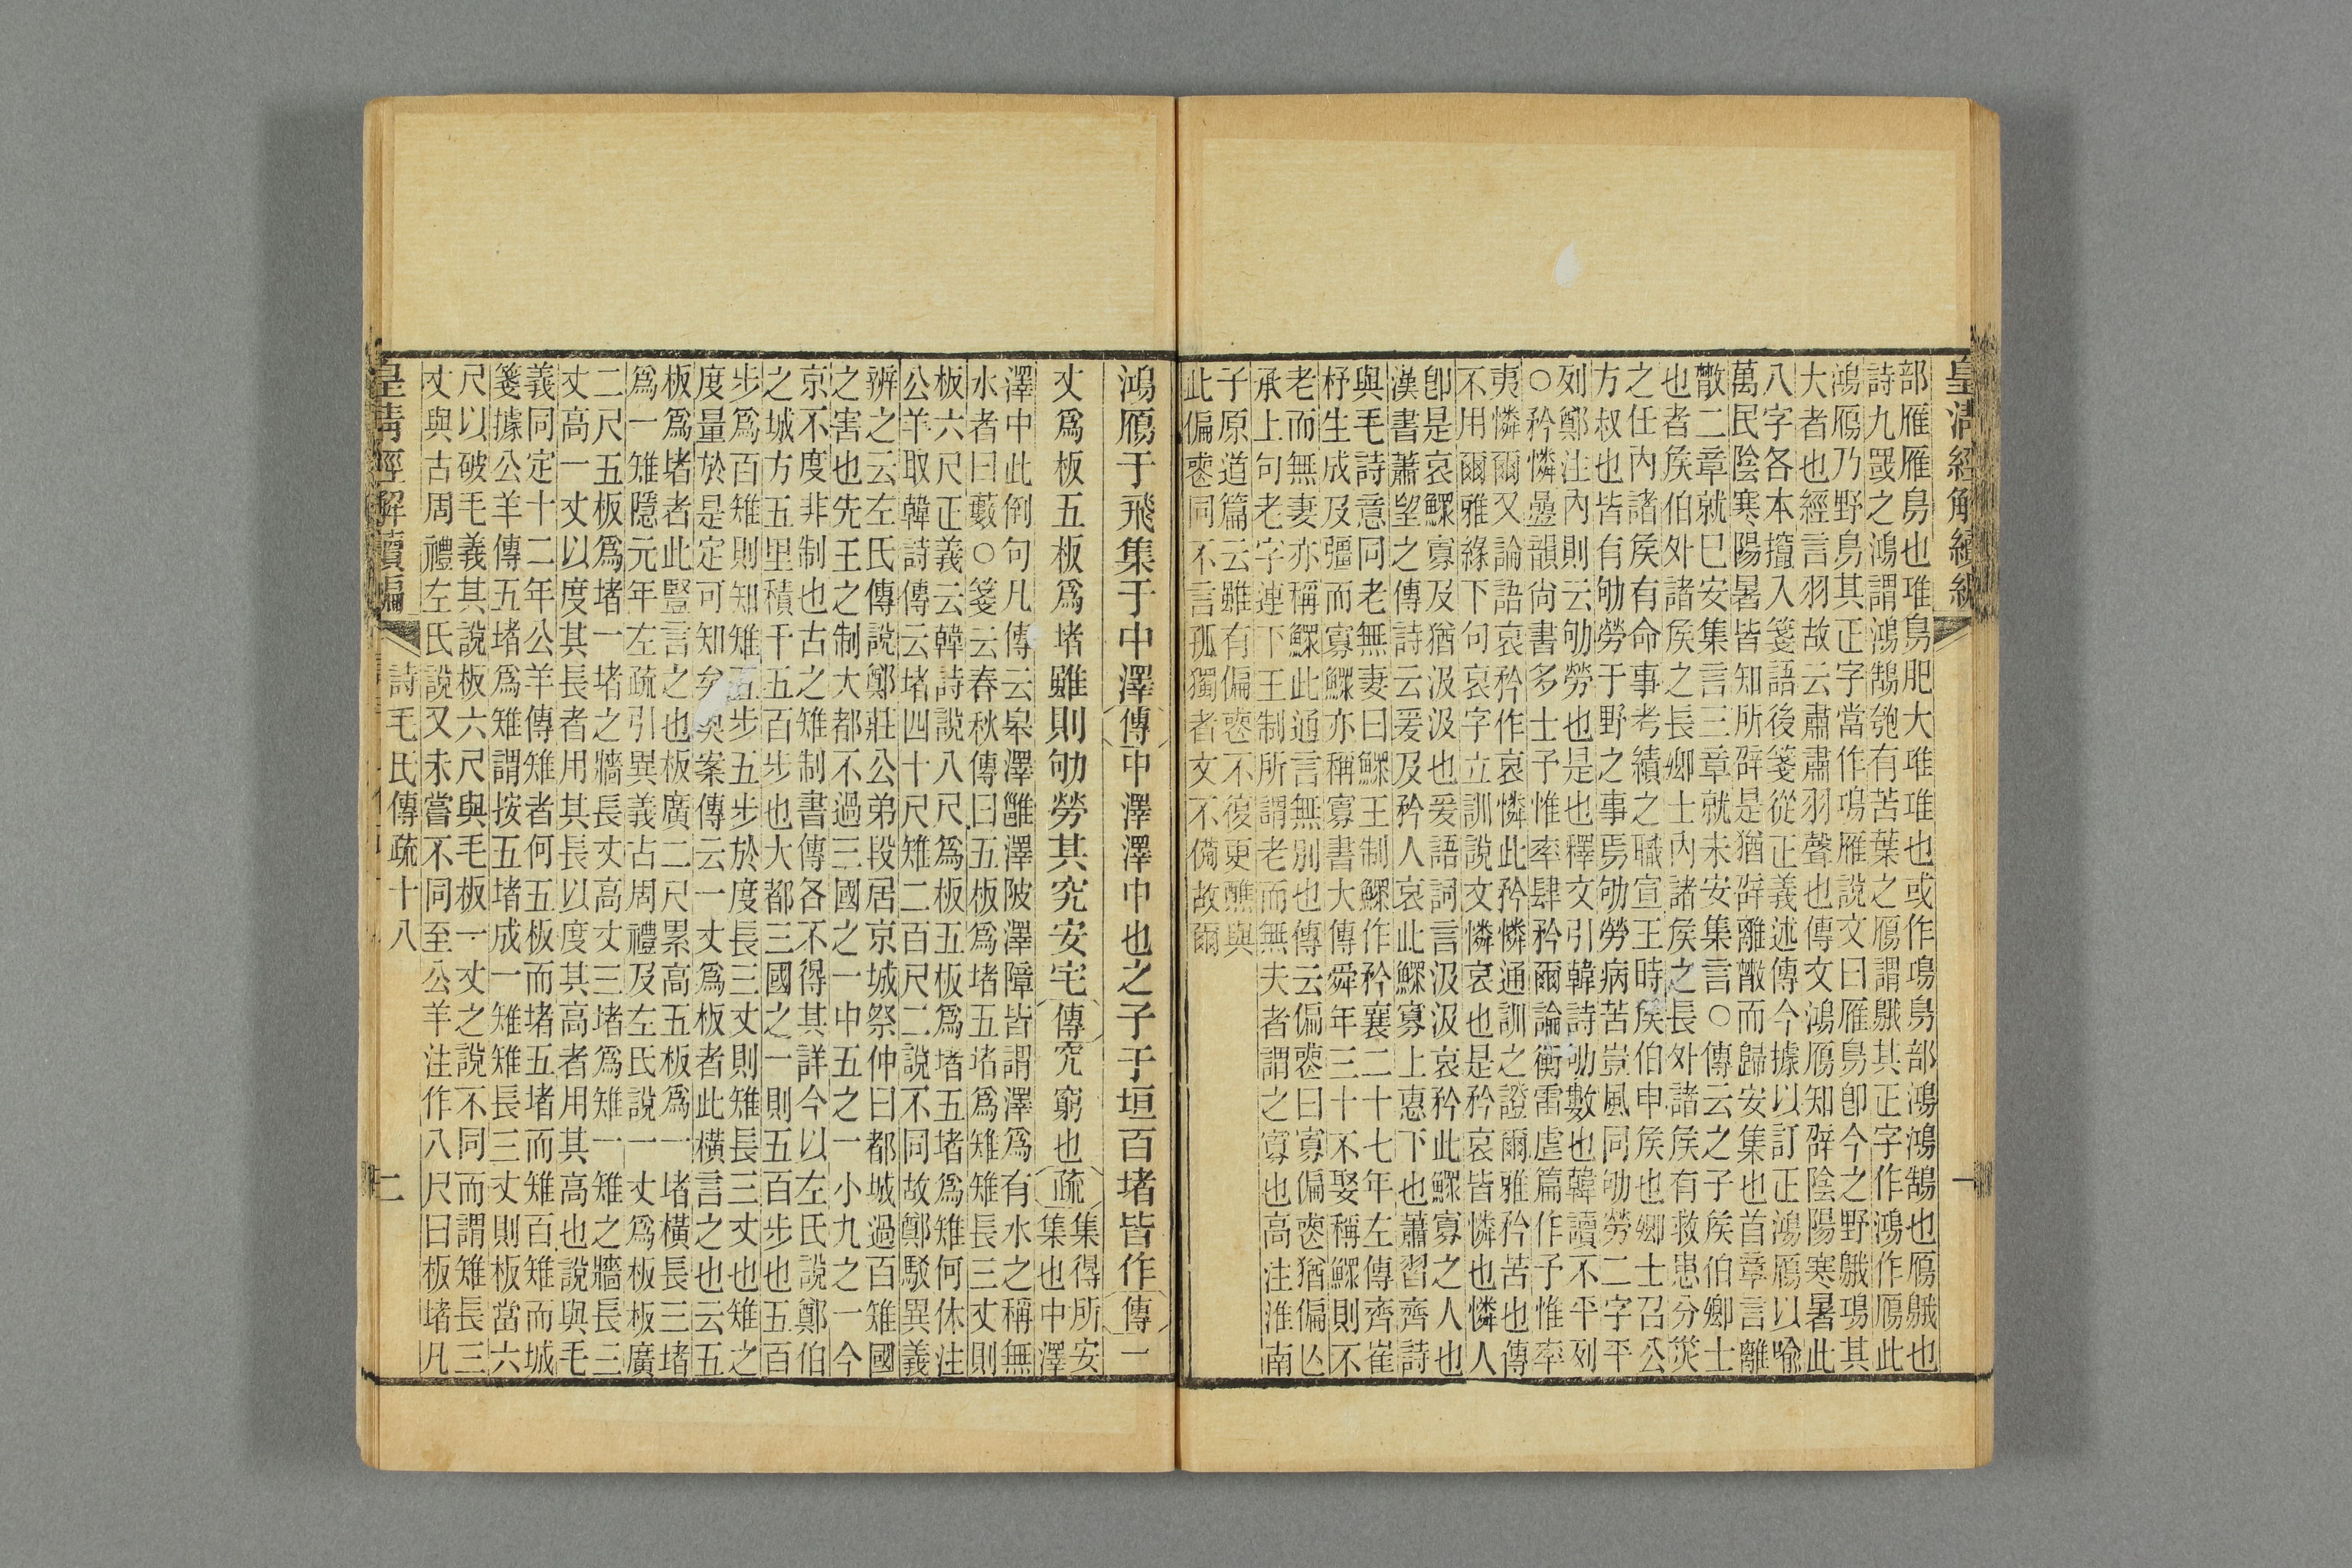 皇清經解續編
一
部雁雁鳥也琟鳥肥大琟琟也或作鳿鳥部鴻鴻鵠也鴈䳘也
詩九罭之鴻謂鴻鵠匏有苦葉之鴈謂䳘其正字作鴻作鴈此
鴻鴈乃野鳥其正字當作鳿雁說文曰雁鳥卽今之野䳘鳿其
大者也經言羽故云肅肅羽聲也傳文鴻鴈知辟陰陽寒暑此
八字各本攛入箋語後箋從正義述傳今據以訂正鴻鴈以喻
萬民陰寒陽暑皆知所辟是猶辟離散而歸安集也首章言離
散二章就已安集言三章就未安集言○傳云之子矦伯卿士
也者矦伯外諸矦之長卿士內諸矦之長外諸矦有救患分災
之任內諸矦有命事考績之職宣王時矦伯申矦也卿士召公
方叔也皆有劬勞于野之事焉劬勞病苦豈風同劬勞二字平
列鄭注內則云劬勞也是也釋文引韓詩劬數也韓讀不平列
○矜憐曡韻尚書多士予惟率肆矜爾論衡雷虛篇作予惟率
夷憐爾又論語哀矜作哀憐此矜憐通訓之證爾雅矜苦也傳
不用爾雅緣下句哀字立訓說文憐哀也是矜哀皆憐也憐人
卽是哀鰥寡及猶汲汲也爰語詞言汲汲哀矜此鰥寡之人也
漢書蕭望之傳詩云爰及矜人哀此鰥寡上惠下也蕭習齊詩
與毛詩意同老無妻曰鰥王制鰥作矜襄二十七年左傳齊崔
杼生成及彊而寡鰥亦稱寡書大傳舜年三十不娶稱鰥則不
老而無妻亦稱鰥此通言無別也傳云偏喪曰寡偏喪猶偏亾
承上句老字連下王制所謂老而無夫者謂之寡也高注淮南
子原道篇云雖有偏喪不復更醮與
此偏喪同不言孤獨者文不備故爾
鴻鴈于飛集于中澤傳中澤澤中也之子于垣百堵皆作傳一
丈爲板五板爲堵雖則劬勞其究安宅傳究窮也疏集得所安
集也中澤
澤中此倒句凡傳云皋澤雝澤陂澤障皆謂澤爲有水之稱無
水者曰藪○箋云春秋傳曰五板爲堵五堵爲雉雉長三丈則
板六尺正義云韓詩說八尺爲板五板爲堵五堵爲雉何休注
公羊取韓詩傳云堵四十尺雉二百尺二說不同故鄭駁異義
辨之云左氏傳說鄭莊公弟段居京城祭仲曰都城過百雉國
之害也先王之制大都不過三國之一中五之一小九之一今
京不度非制也古之雉制書傳各不得其詳今以左氏說鄭伯
之城方五里積千五百步也大都三國之一則五百步也五百
步爲百雉則知雉五步五步於度長三丈則雉長三丈也雉之
度量於是定可知矣奐案傳云一丈爲板者此橫言之也云五
板爲堵者此豎言之也板廣二尺累高五板爲一堵橫長三堵
爲一雉隱元年左疏引異義古周禮及左氏說一丈爲板板廣
二尺五板爲堵一堵之牆長丈高丈三堵爲雉一雉之牆長三
丈高一丈以度其長者用其長以度其高者用其高也說與毛
義同定十二年公羊傳雉者何五板而堵五堵而雉百雉而城
箋據公羊傳五堵爲雉謂按五堵成一雉雉長三丈則板當六
尺以破毛義其說板六尺與毛板一丈之說不同而謂雉長三
丈與古周禮左氏說又未嘗不同至公羊注作八尺曰板堵凡
皇清經解續編
詩毛氏傳疏十八
二